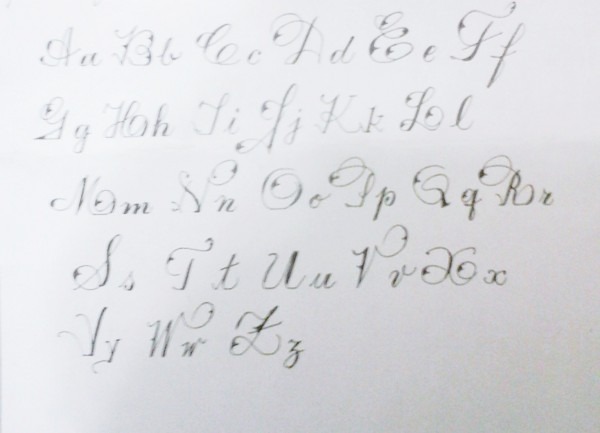 Aa Bb Cc Dd Ee Ff
Gg Hh Ii Jj Kk Ll
Mm Nn Oo Pp Qq Rr
Ss Tt Uu Vv Xx
Yy Ww Zz